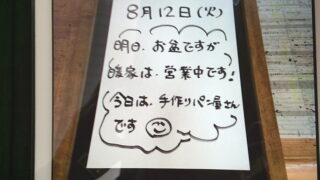 8月12日(火)
明日、お盆ですが
暖家は、営業中です!
今日は、手作りパン屋さん
です